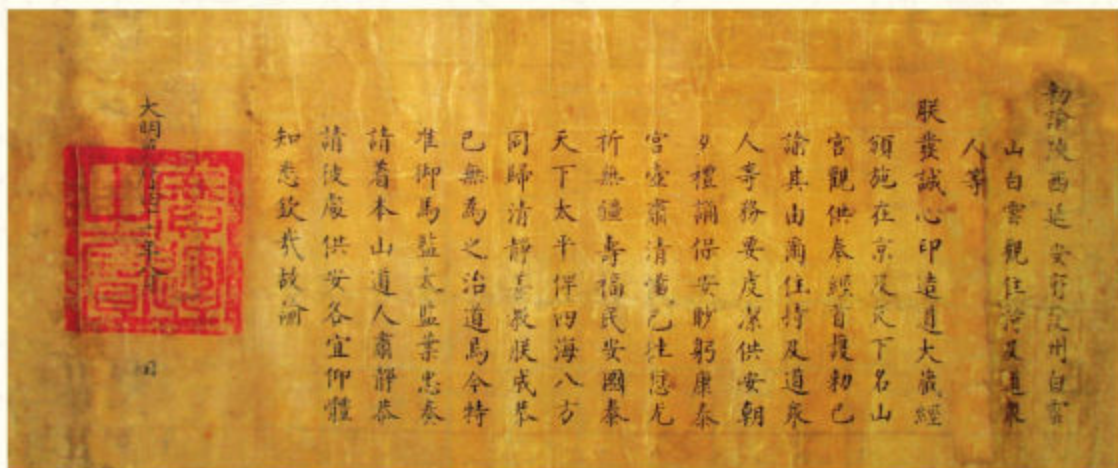 勅諭陝西延安府葭州白雲
山白雲觀住持及道衆
人等
朕發誠心印造道大藏經
頒施在京及天下名山
宮觀供奉經首護勅已
諭其由爾住持及道衆
人等務要虔潔供安朝
夕禮誦保安眇躬康泰
宮壼肅清懺已往愆尤
祈無疆壽福民安國泰
天下太平俾四海八方
同歸清靜善教朕成恭
己無為之治道焉今特
准御馬監太監葉忠奏
請着本山道人肅靜恭
請彼處供安各宜仰體
知悉欽哉故諭
大明萬曆年 日
廣運之寶